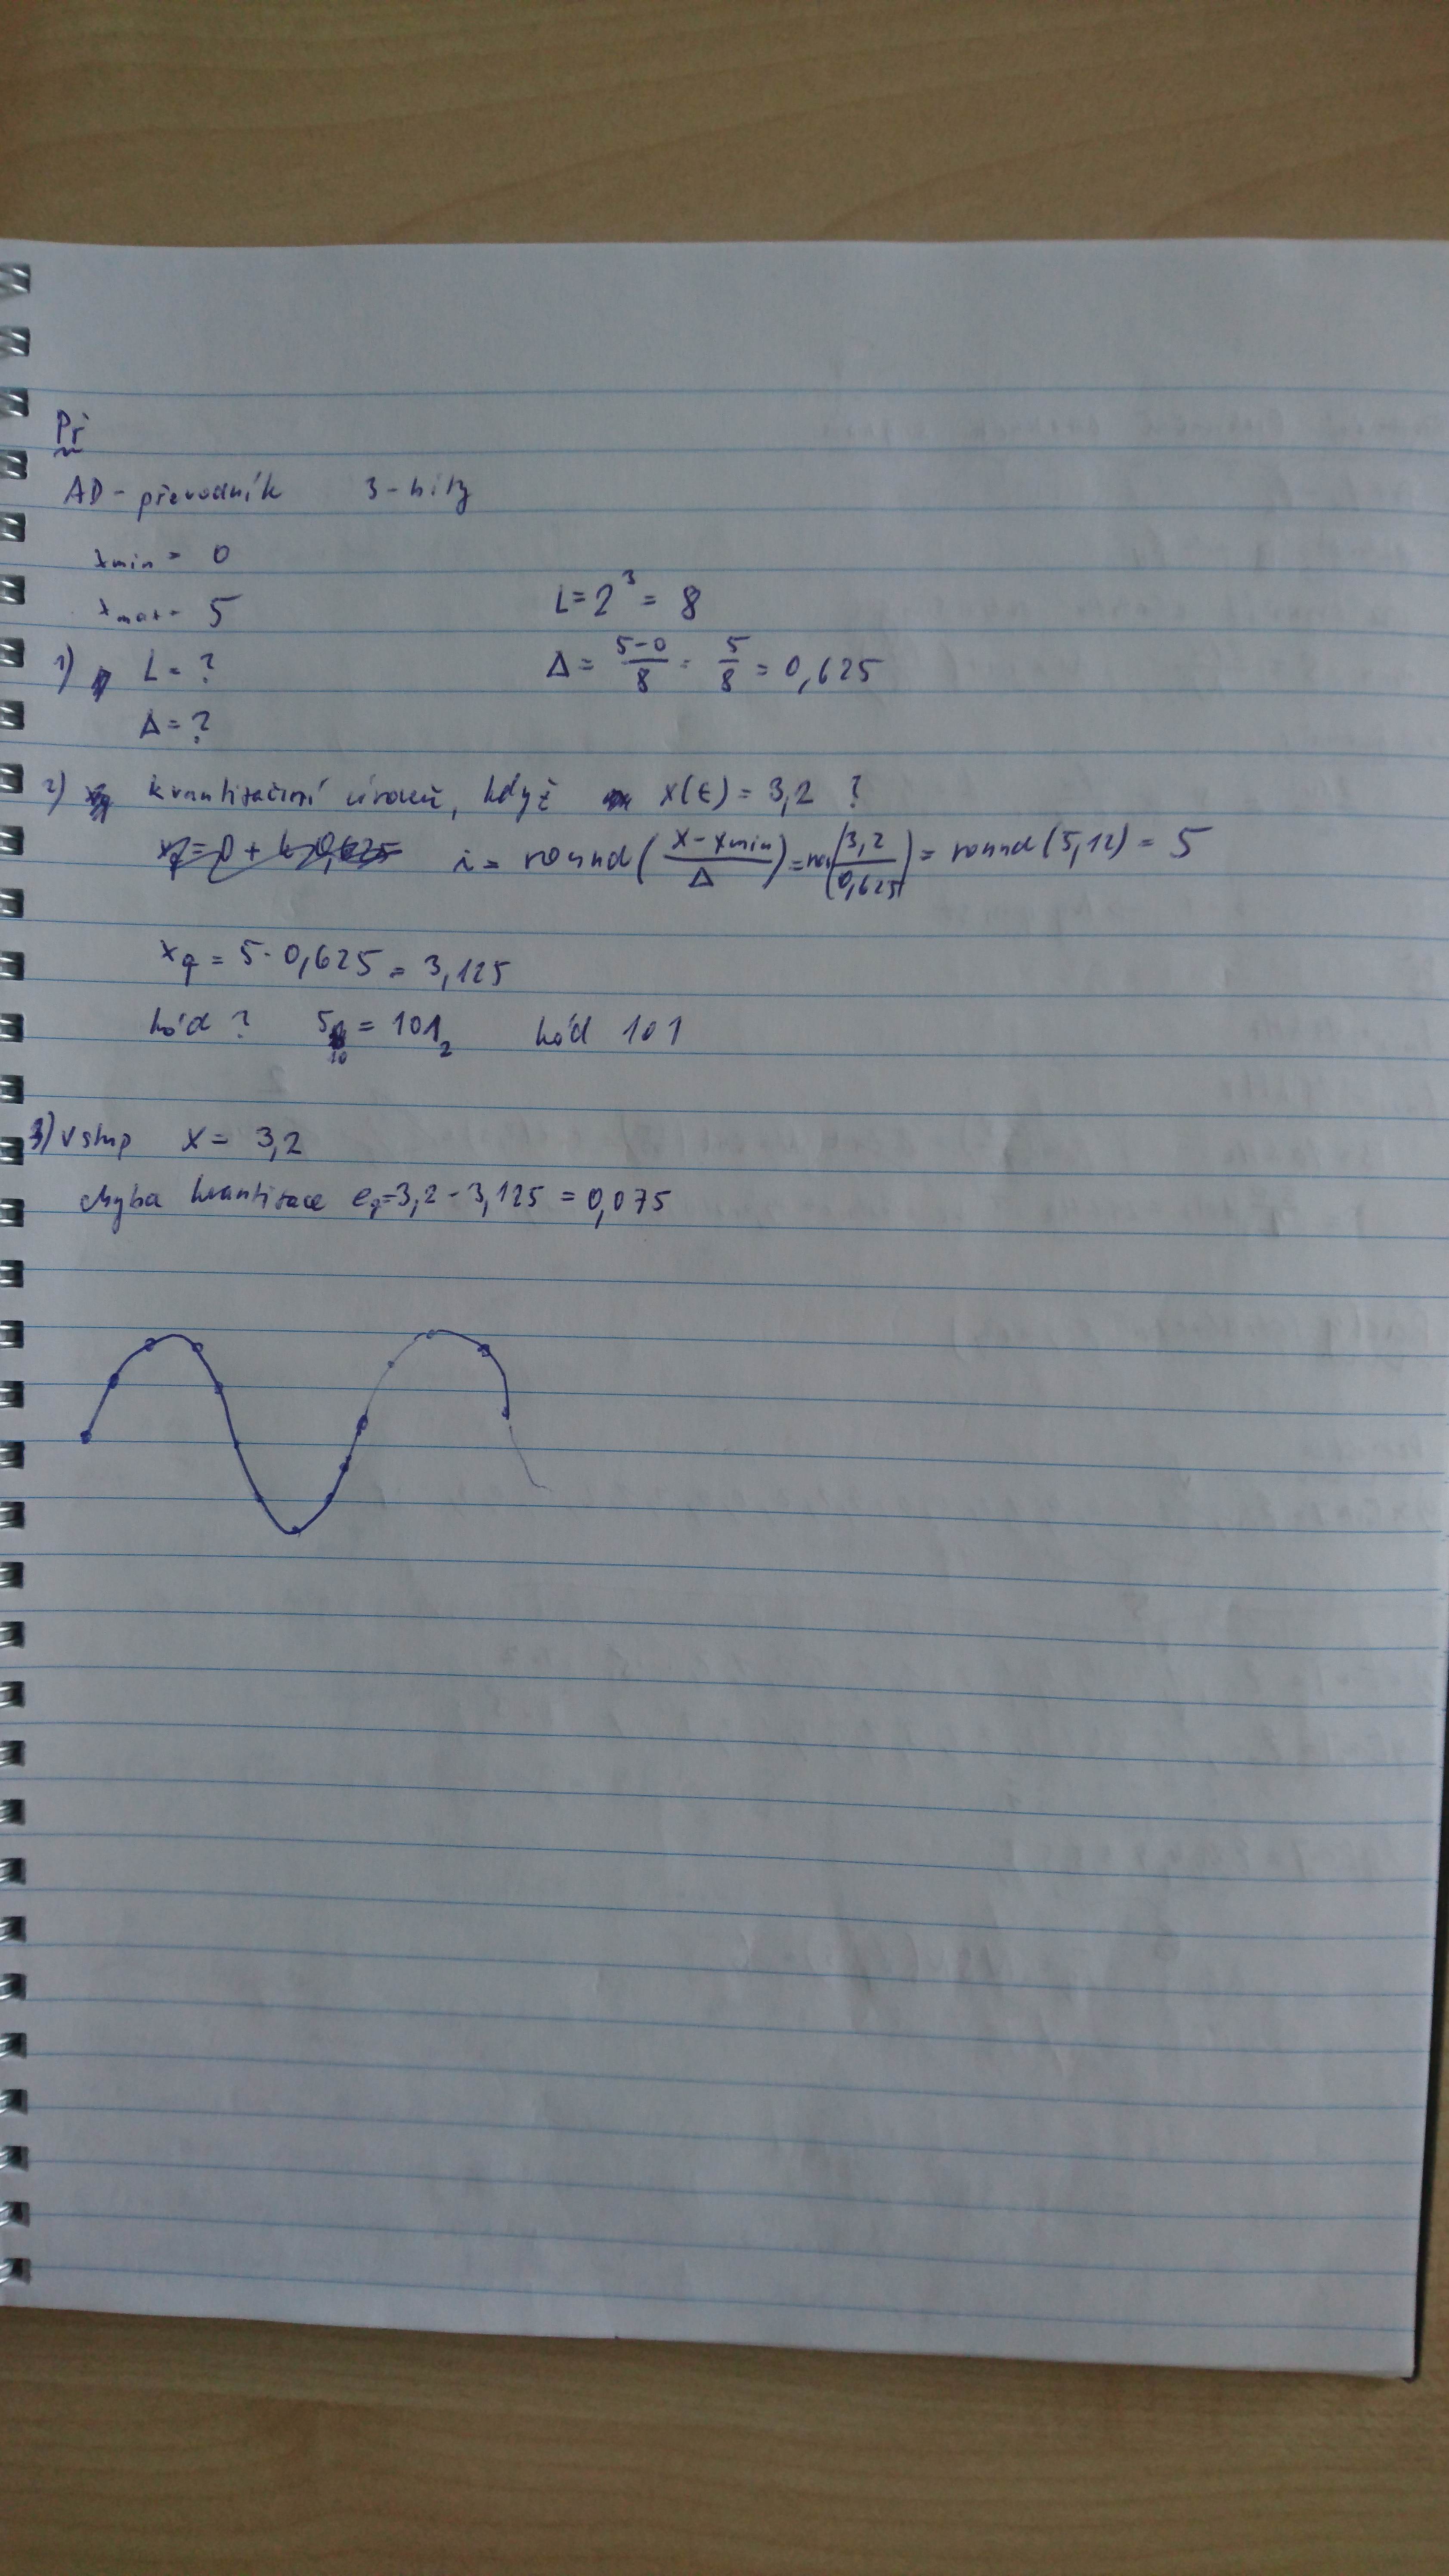 Př
AD-převodník 3-bity
xmin = 0
xmax = 5 L = 2³ = 8
1) L = ? Δ = (5-0)/8 = 5/8 = 0,625
Δ = ?
2) kvantizační úroveň, když x(t) = 3,2 ?
i = round((x-xmin)/Δ) = (3,2/0,625) = round(5,12) = 5
xq = 5·0,625 = 3,125
kód ? 5₁₀ = 101₂ kód 101
3) vstup x = 3,2
chyba kvantizace eq=3,2-3,125 = 0,075